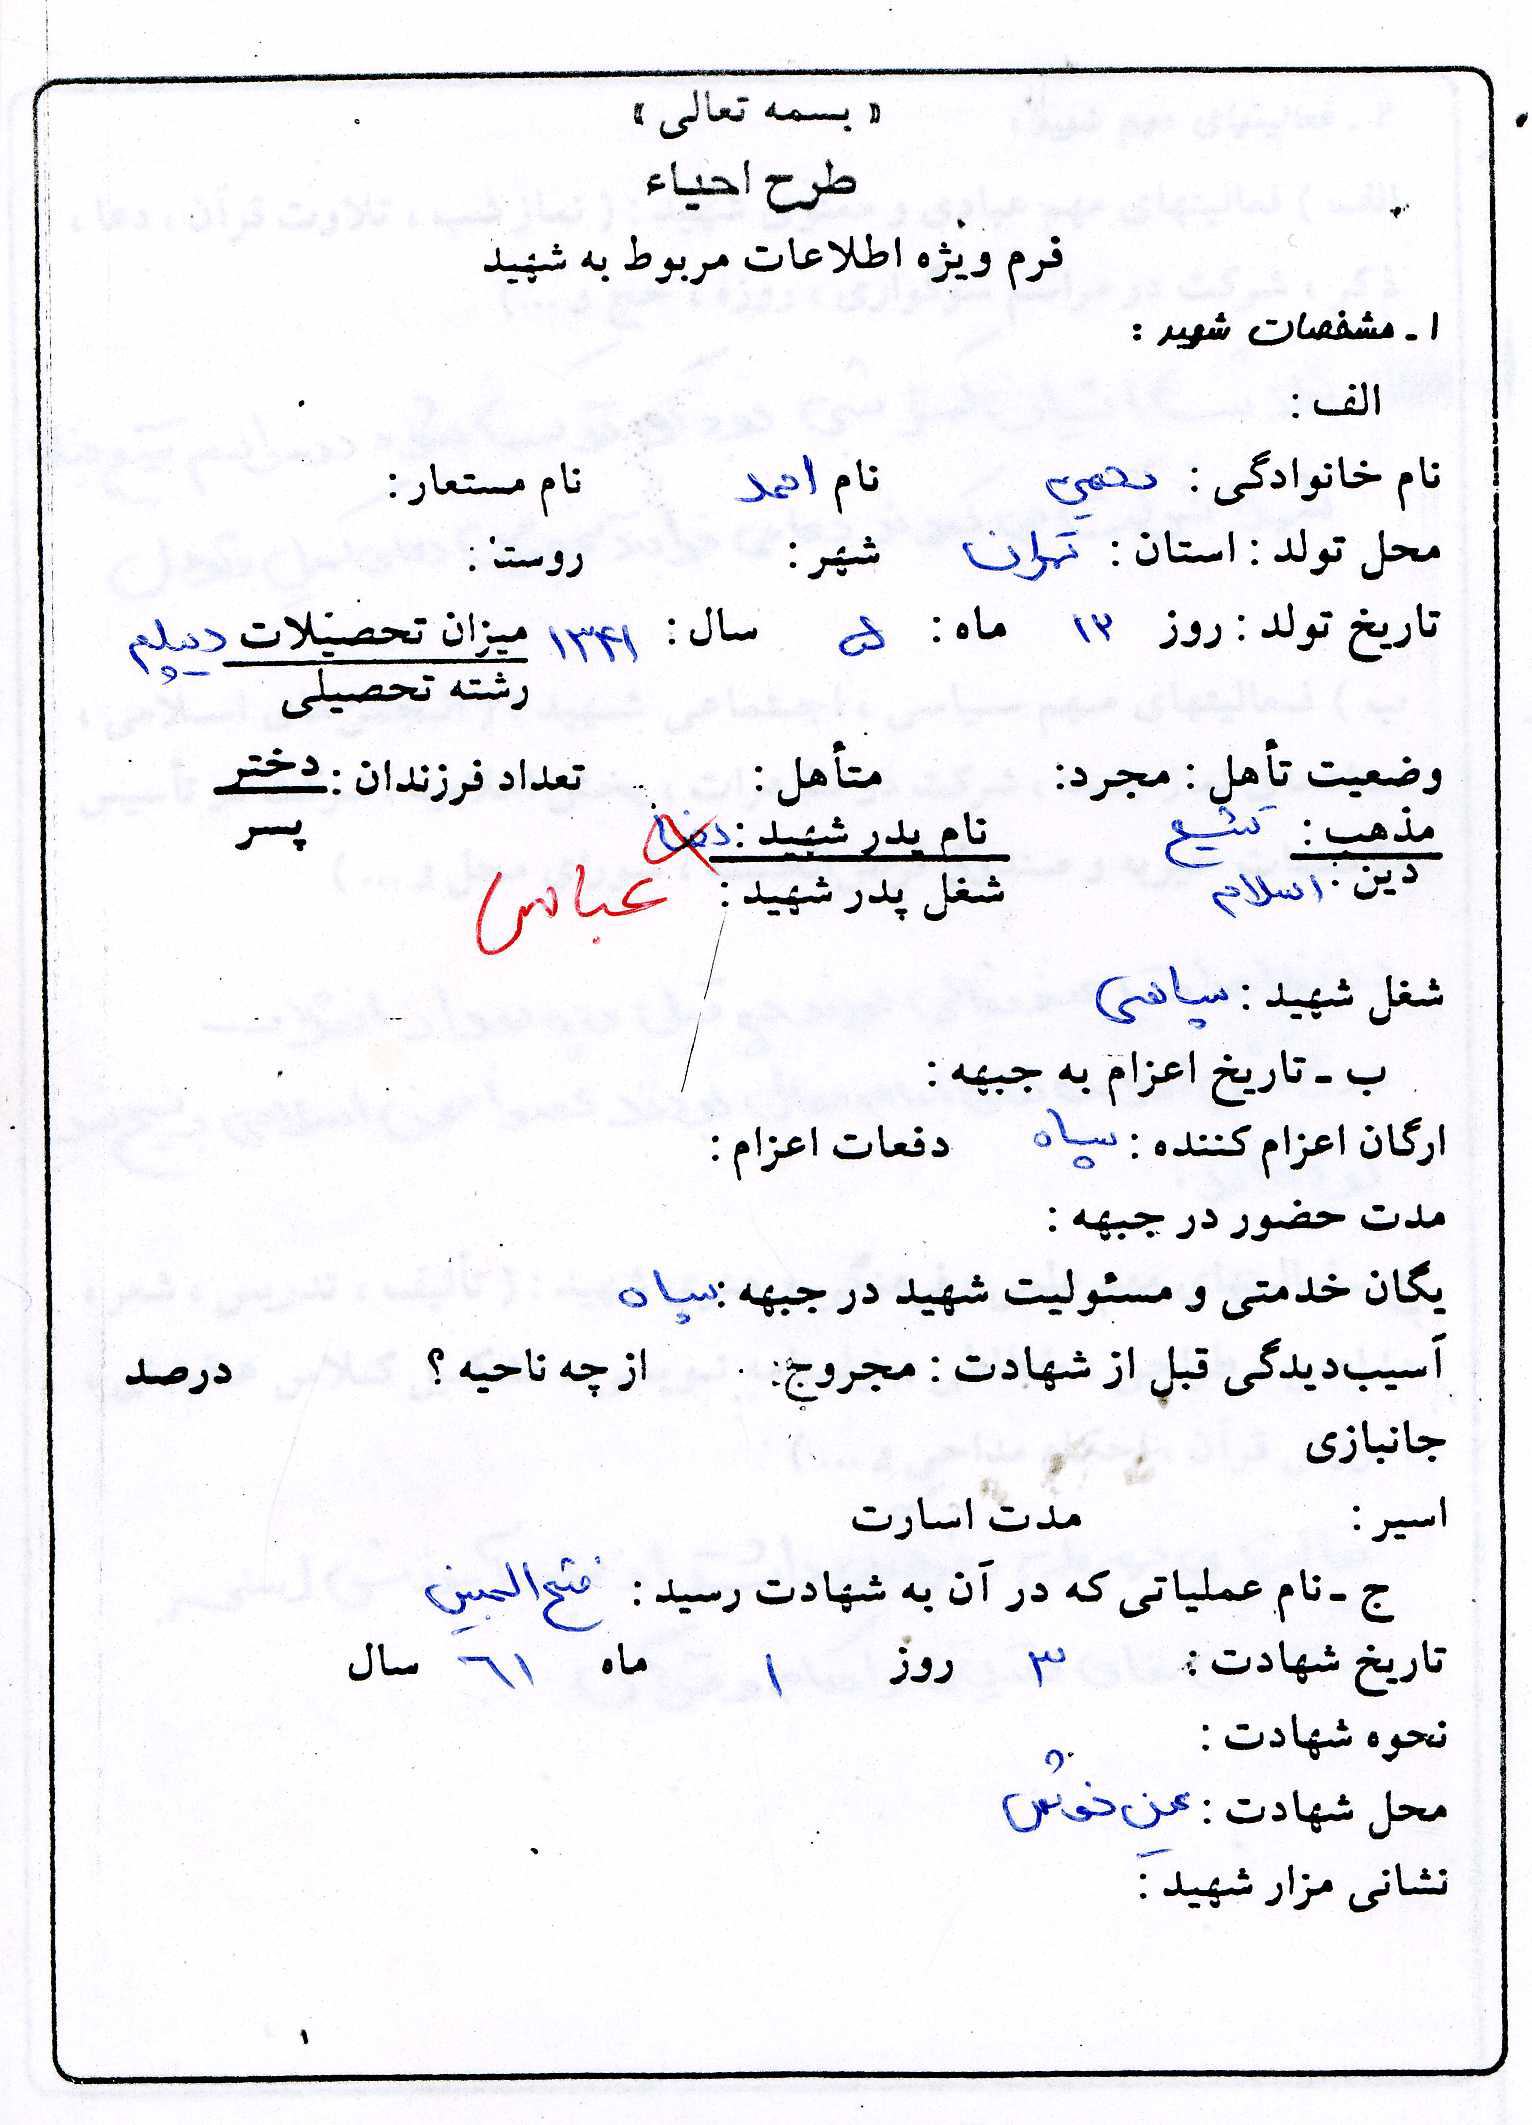 « بسمه تعالی »
طرح احیاء
فرم ویژه اطلاعات مربوط به شهید
۱ - مشخصات شهید :
الف :
نام خانوادگی : نام احمد نام مستعار :
محل تولد : استان : تهران شهر : روستا :
تاریخ تولد : روز ۱۳ ماه : سال : ۱۳۴۱ میزان تحصیلات دیپلم
رشته تحصیلی
وضعیت تأهل : مجرد : متأهل : تعداد فرزندان : دختر
پسر
مذهب : تشیع نام پدر شهید :
دین : اسلام شغل پدر شهید : عباس
شغل شهید : سپاهی
ب - تاریخ اعزام به جبهه :
ارگان اعزام کننده : سپاه دفعات اعزام :
مدت حضور در جبهه :
یگان خدمتی و مسئولیت شهید در جبهه : سپاه
آسیب‌دیدگی قبل از شهادت : مجروح : از چه ناحیه ؟ درصد
جانبازی
اسیر : مدت اسارت
ج - نام عملیاتی که در آن به شهادت رسید : فتح المبین
تاریخ شهادت : ۳ روز ۱ ماه ۶۱ سال
نحوه شهادت :
محل شهادت : عین خوش
نشانی مزار شهید :
۱